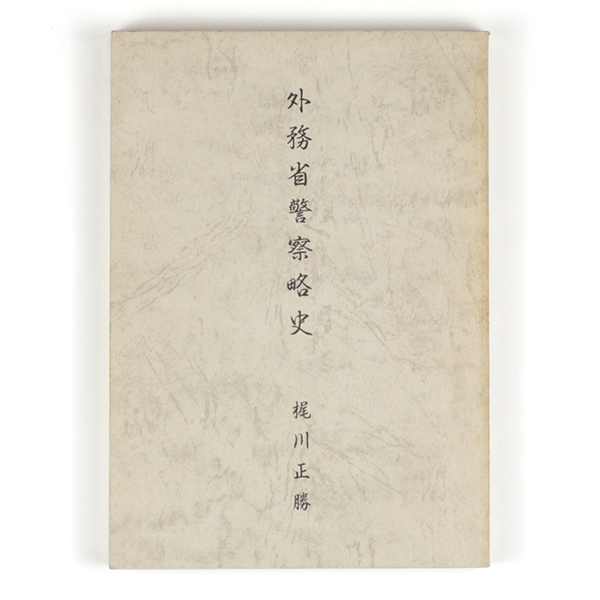 外務省警察略史
梶川正勝